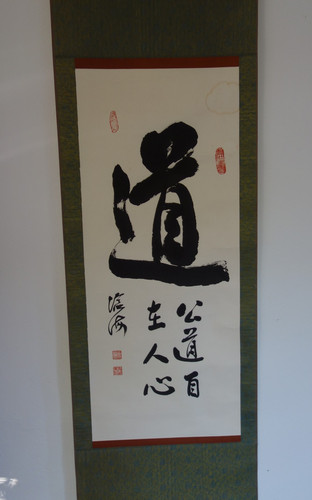 道
公道自
在人心